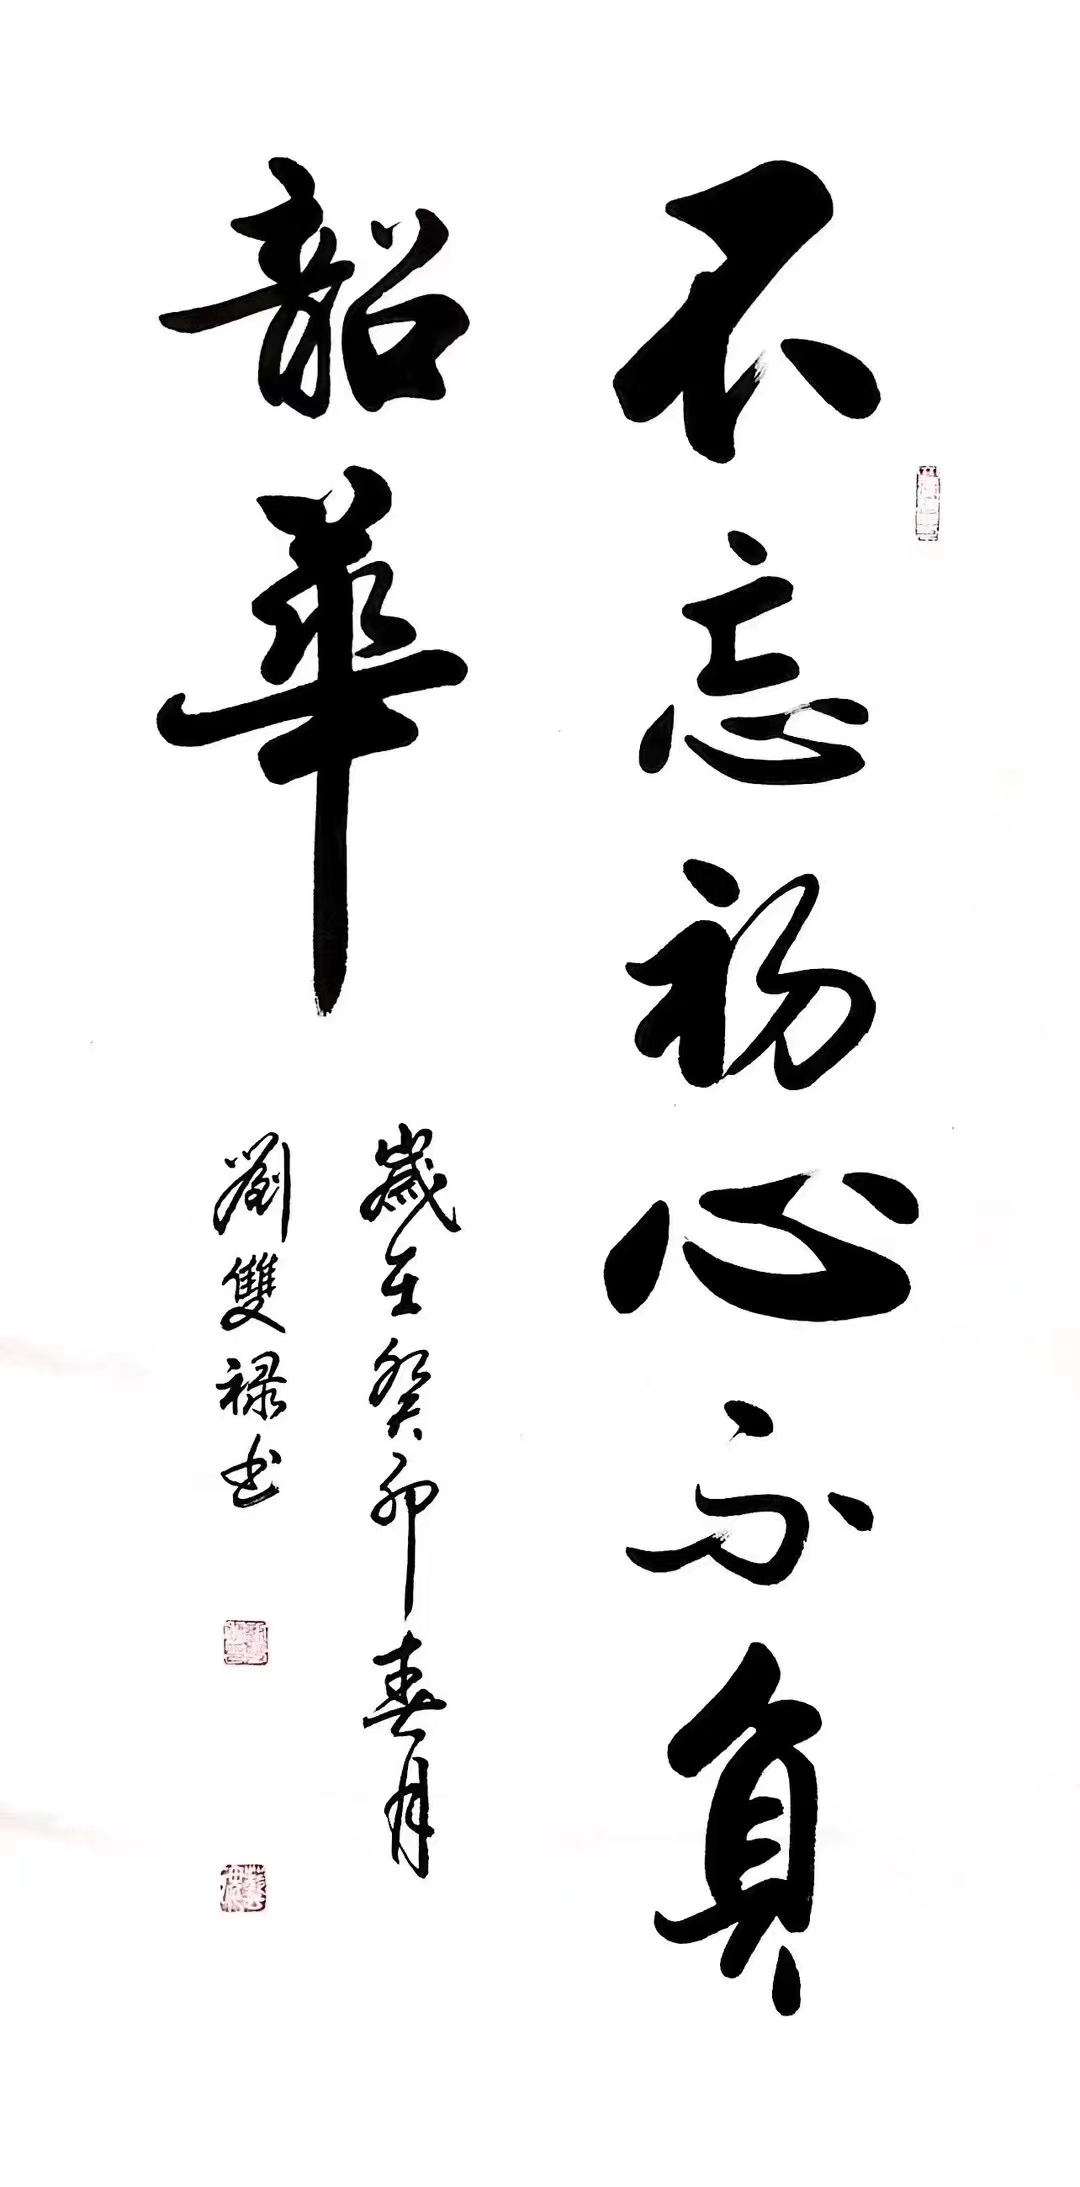 不忘初心不負
韶華
歲在癸卯春月
劉雙禄书